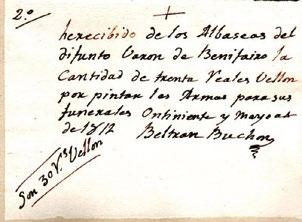 2.º
he recibido de los Albaseas del
difunto Varon de Benifairo la
Cantidad de trenta Reales Vellon
por pintar las Armas para sus
funerales Ontiniente y Mayo at
de 1812
Beltran Buchon
Son 30 Rs Vellon